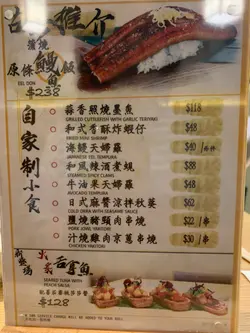 推介
原條鰻魚飯
EEL DON
$238
自家制小食
蒜香照燒墨魚 $118
GRILLED CUTTLEFISH WITH GARLIC TERIYAKI
和式香酥炸蝦仔 $48
FRIED MINI SHRIMP
海鰻天婦羅 $40
JAPANESE EEL TEMPURA
和風辣酒煮蜆 $88
STEAMED SPICY CLAMS
牛油果天婦羅 $48
AVOCADO TEMPURA
日式麻醬涼拌秋葵 $62
COLD OKRA WITH SESAME SAUCE
鹽燒豬頸肉串燒 $22/串
PORK JOWL YAKITORI
汁燒雞肉京蔥串燒 $30/串
CHICKEN YAKITORI
火炙吞拿魚
SEARED TUNA WITH
PEACH SALSA
$128
10% SERVICE CHARGE WILL BE ADDED TO YOUR BILL